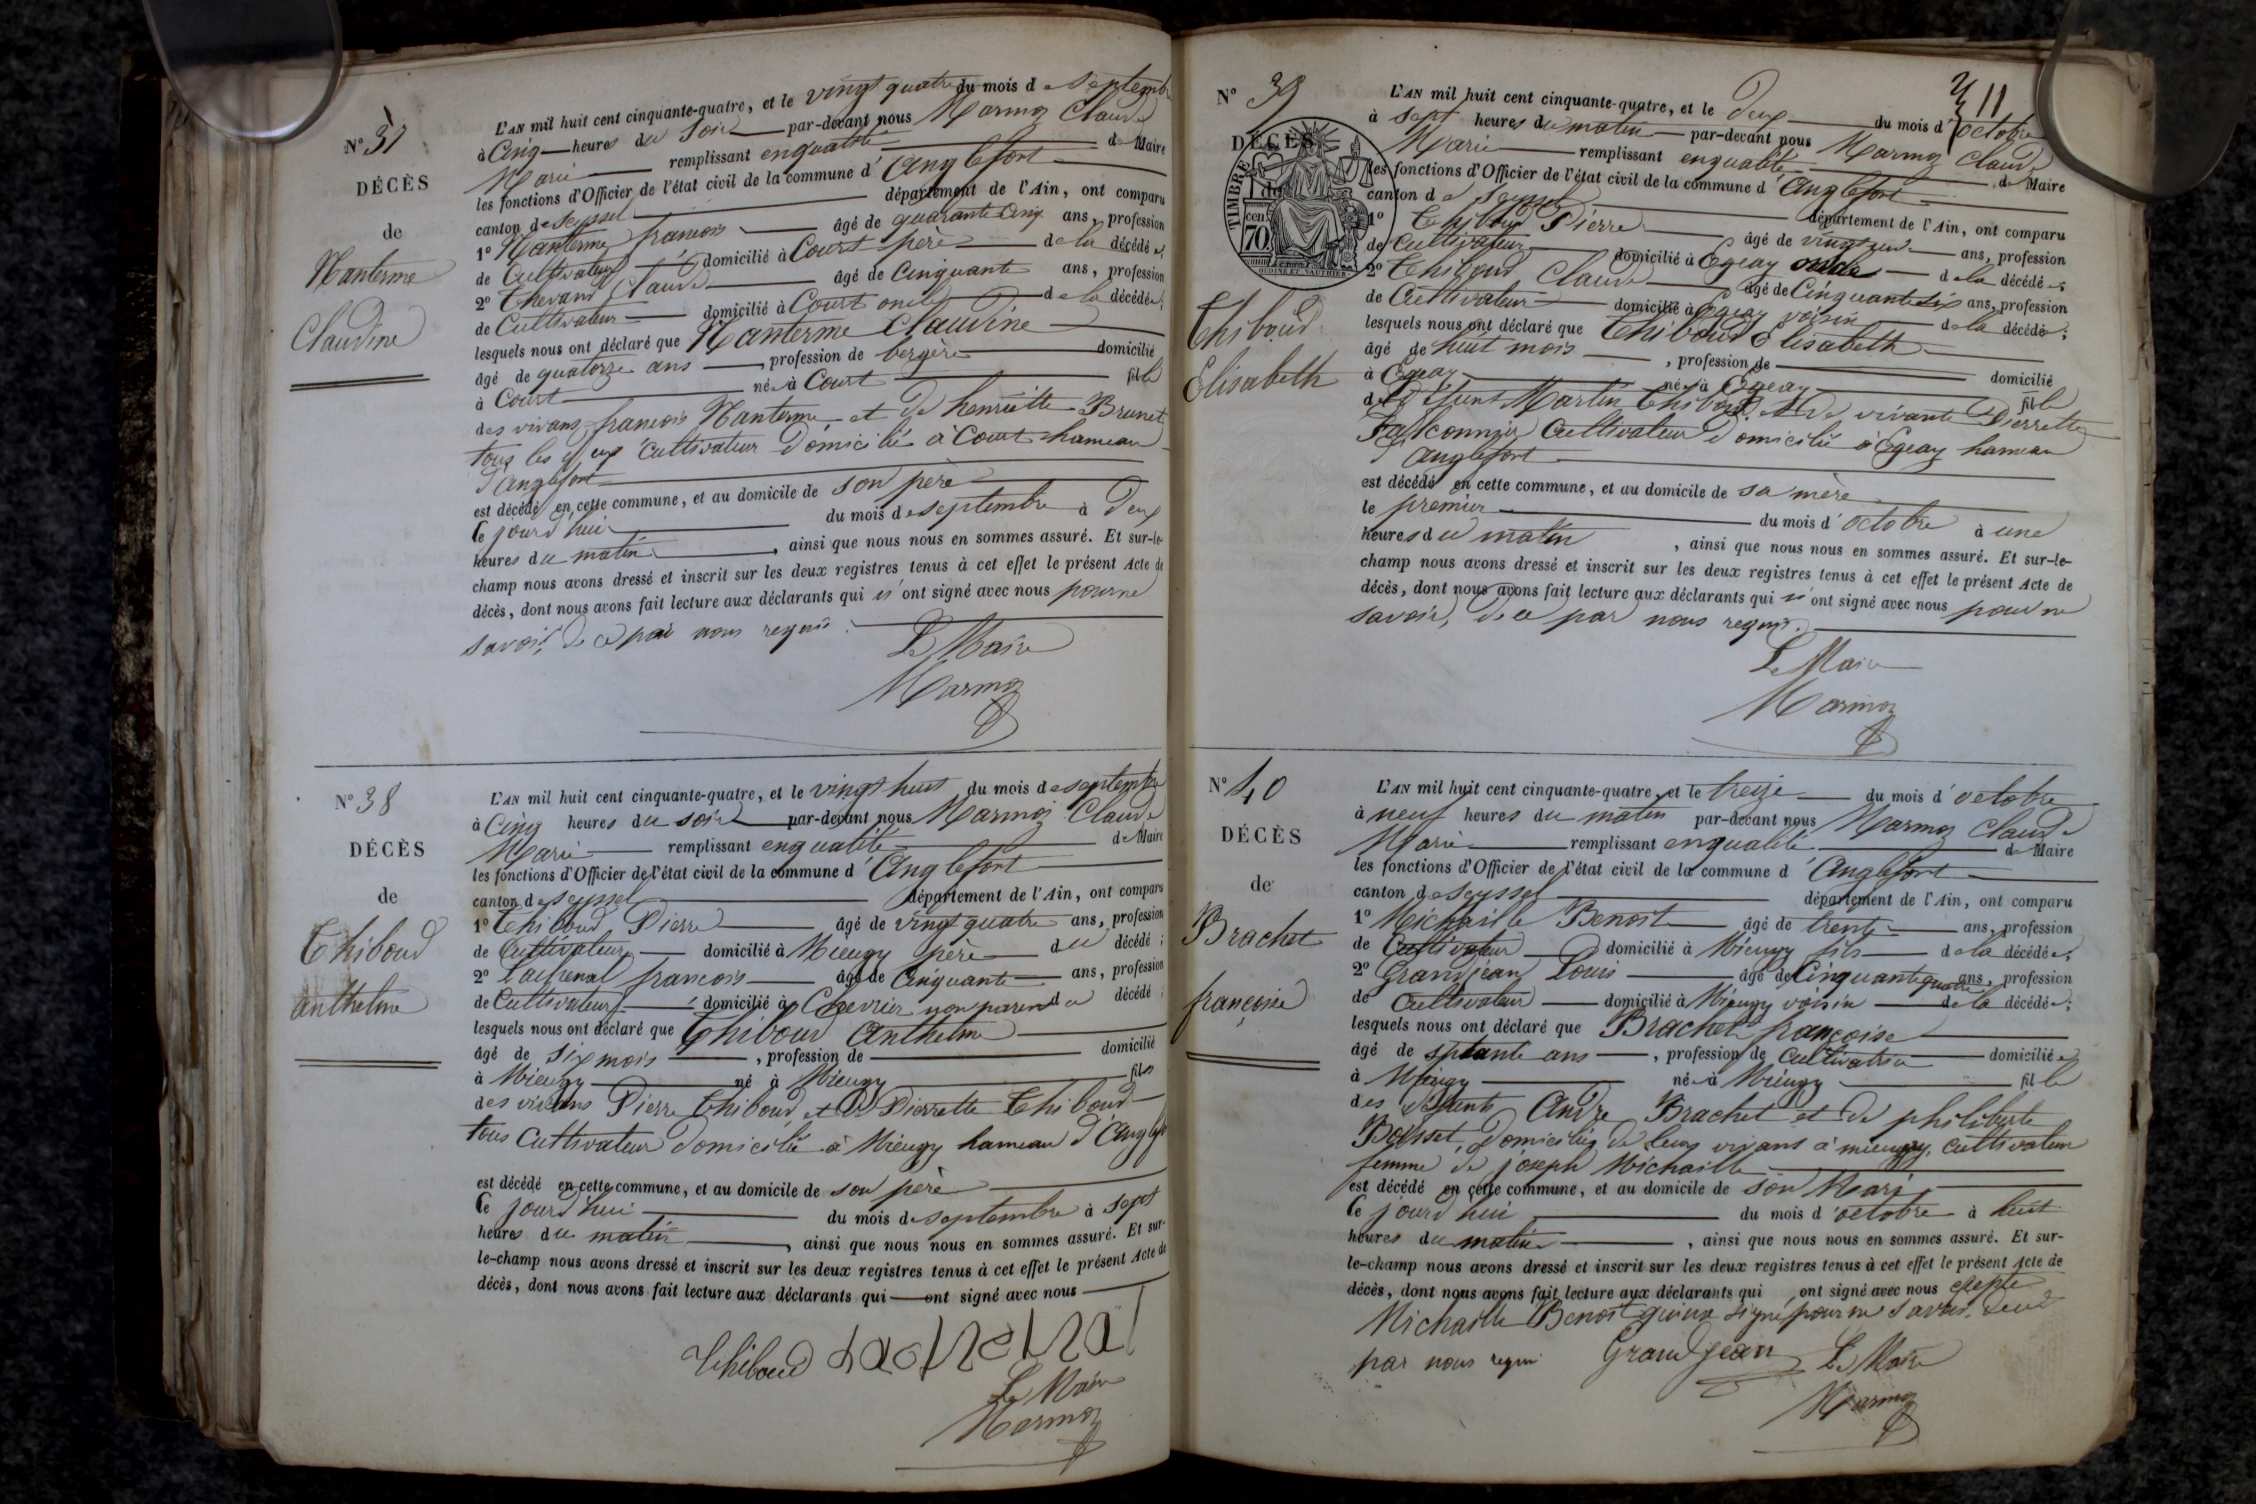 N° 37
DÉCÈS
de
Nanterme
Claudine
L'AN mil huit cent cinquante-quatre, et le vingt quatre du mois de septembre
à Cinq heures du soir par-devant nous Marmoz Claude
Marie remplissant enqualité de Maire
les fonctions d'Officier de l'état civil de la commune d'Anglefort
canton de Seyssel département de l'Ain, ont comparu
1° Nanterme francois âgé de quarante Cinq ans, profession
de Cultivateur domicilié à Court père de la décédée;
2° Thevand Claude âgé de Cinquante ans, profession
de Cultivateur domicilié à Court oncle de la décédée;
lesquels nous ont déclaré que Nanterme Claudine
âgé de quatorze ans, profession de bergère domicilié
à Court née à Court fille
des vivans francois Nanterme et de henriette Brunet
tous les deux Cultivateur domicilié à Court hameau
d'anglefort
est décédé en cette commune, et au domicile de son père
Ce jourd'hui du mois de septembre à deux
heures du matin, ainsi que nous nous en sommes assuré. Et sur-le-
champ nous avons dressé et inscrit sur les deux registres tenus à cet effet le présent Acte de
décès, dont nous avons fait lecture aux déclarants qui n'ont signé avec nous pour ne
savoir, de ce par nous requis.
Le Maire
Marmoz
N° 38
DÉCÈS
de
Thiboud
anthelme
L'AN mil huit cent cinquante-quatre, et le vingt huit du mois de septembre
à Cinq heures du soir par-devant nous Marmoz Claude
Marie remplissant enqualité de Maire
les fonctions d'Officier de l'état civil de la commune d'Anglefort
canton de Seyssel département de l'Ain, ont comparu
1° Thiboud Pierre âgé de vingt quatre ans, profession
de Cultivateur domicilié à Mieugy père du décédé;
2° Lachenal francois âgé de Cinquante ans, profession
de Cultivateur domicilié à Chevrier non parent du décédé;
lesquels nous ont déclaré que Thiboud Anthelme
âgé de six mois, profession de domicilié
à Mieugy né à Mieugy fils
des vivans Pierre Thiboud et de Pierrette Thiboud
tous Cultivateur domicilié à Mieugy hameau d'Anglefort
est décédé en cette commune, et au domicile de son père
Ce jourd'hui du mois de septembre à sept
heures du matin, ainsi que nous nous en sommes assuré. Et sur-
le-champ nous avons dressé et inscrit sur les deux registres tenus à cet effet le présent Acte de
décès, dont nous avons fait lecture aux déclarants qui ont signé avec nous
Thiboud Lachenal
Le Maire
Marmoz
11
N° 39
DÉCÈS
de
TIMBRE
cen
70
OUDINÉ ET VAUTHIER
Thiboud
Elisabeth
L'AN mil huit cent cinquante-quatre, et le deux du mois d'octobre
à sept heures du matin par-devant nous Marmoz Claude
Marie remplissant enqualité de Maire
les fonctions d'Officier de l'état civil de la commune d'Anglefort
canton de Seyssel département de l'Ain, ont comparu
1° Thiboud Pierre âgé de vingt un ans, profession
de Cultivateur domicilié à Egeay oncle de la décédée;
2° Thiboud Claude âgé de Cinquante six ans, profession
de Cultivateur domicilié à Egeay voisin de la décédée;
lesquels nous ont déclaré que Thiboud Elisabeth
âgé de huit mois, profession de domicilié
à Egeay née à Egeay fille
de défunt Martin Thiboud et de vivante Pierrette
Falconnier Cultivateur domicilié à Egeay hameau
d'anglefort
est décédé en cette commune, et au domicile de sa mère
le premier du mois d'octobre à une
heures du matin, ainsi que nous nous en sommes assuré. Et sur-le-
champ nous avons dressé et inscrit sur les deux registres tenus à cet effet le présent Acte de
décès, dont nous avons fait lecture aux déclarants qui n'ont signé avec nous pour ne
savoir, de ce par nous requis.
Le Maire
Marmoz
N° 40
DÉCÈS
de
Brachet
françoise
L'AN mil huit cent cinquante-quatre, et le treize du mois d'octobre
à neuf heures du matin par-devant nous Marmoz Claude
Marie remplissant enqualité de Maire
les fonctions d'Officier de l'état civil de la commune d'Anglefort
canton de Seyssel département de l'Ain, ont comparu
1° Michaille Benoit âgé de trente ans, profession
de Cultivateur domicilié à Mieugy fils de la décédée;
2° Grandjean Louis âgé de Cinquante quatre ans, profession
de Cultivateur domicilié à Mieugy voisin de la décédée;
lesquels nous ont déclaré que Brachet françoise
âgé de septante ans, profession de Cultivatrice domiciliée
à Mieugy née à Mieugy fille
des défunts André Brachet et de philiberte
Bousset, domiciliés de leurs vivans à mieugy, cultivateur
femme de joseph Michaille
est décédé en cette commune, et au domicile de son Mari
Ce jourd'hui du mois d'octobre à huit
heures du matin, ainsi que nous nous en sommes assuré. Et sur-
le-champ nous avons dressé et inscrit sur les deux registres tenus à cet effet le présent Acte de
décès, dont nous avons fait lecture aux déclarants qui ont signé avec nous excepté
Michaille Benoit qui n'a signé pour ne savoir, de ce
par nous requis Grandjean Le Maire
Marmoz